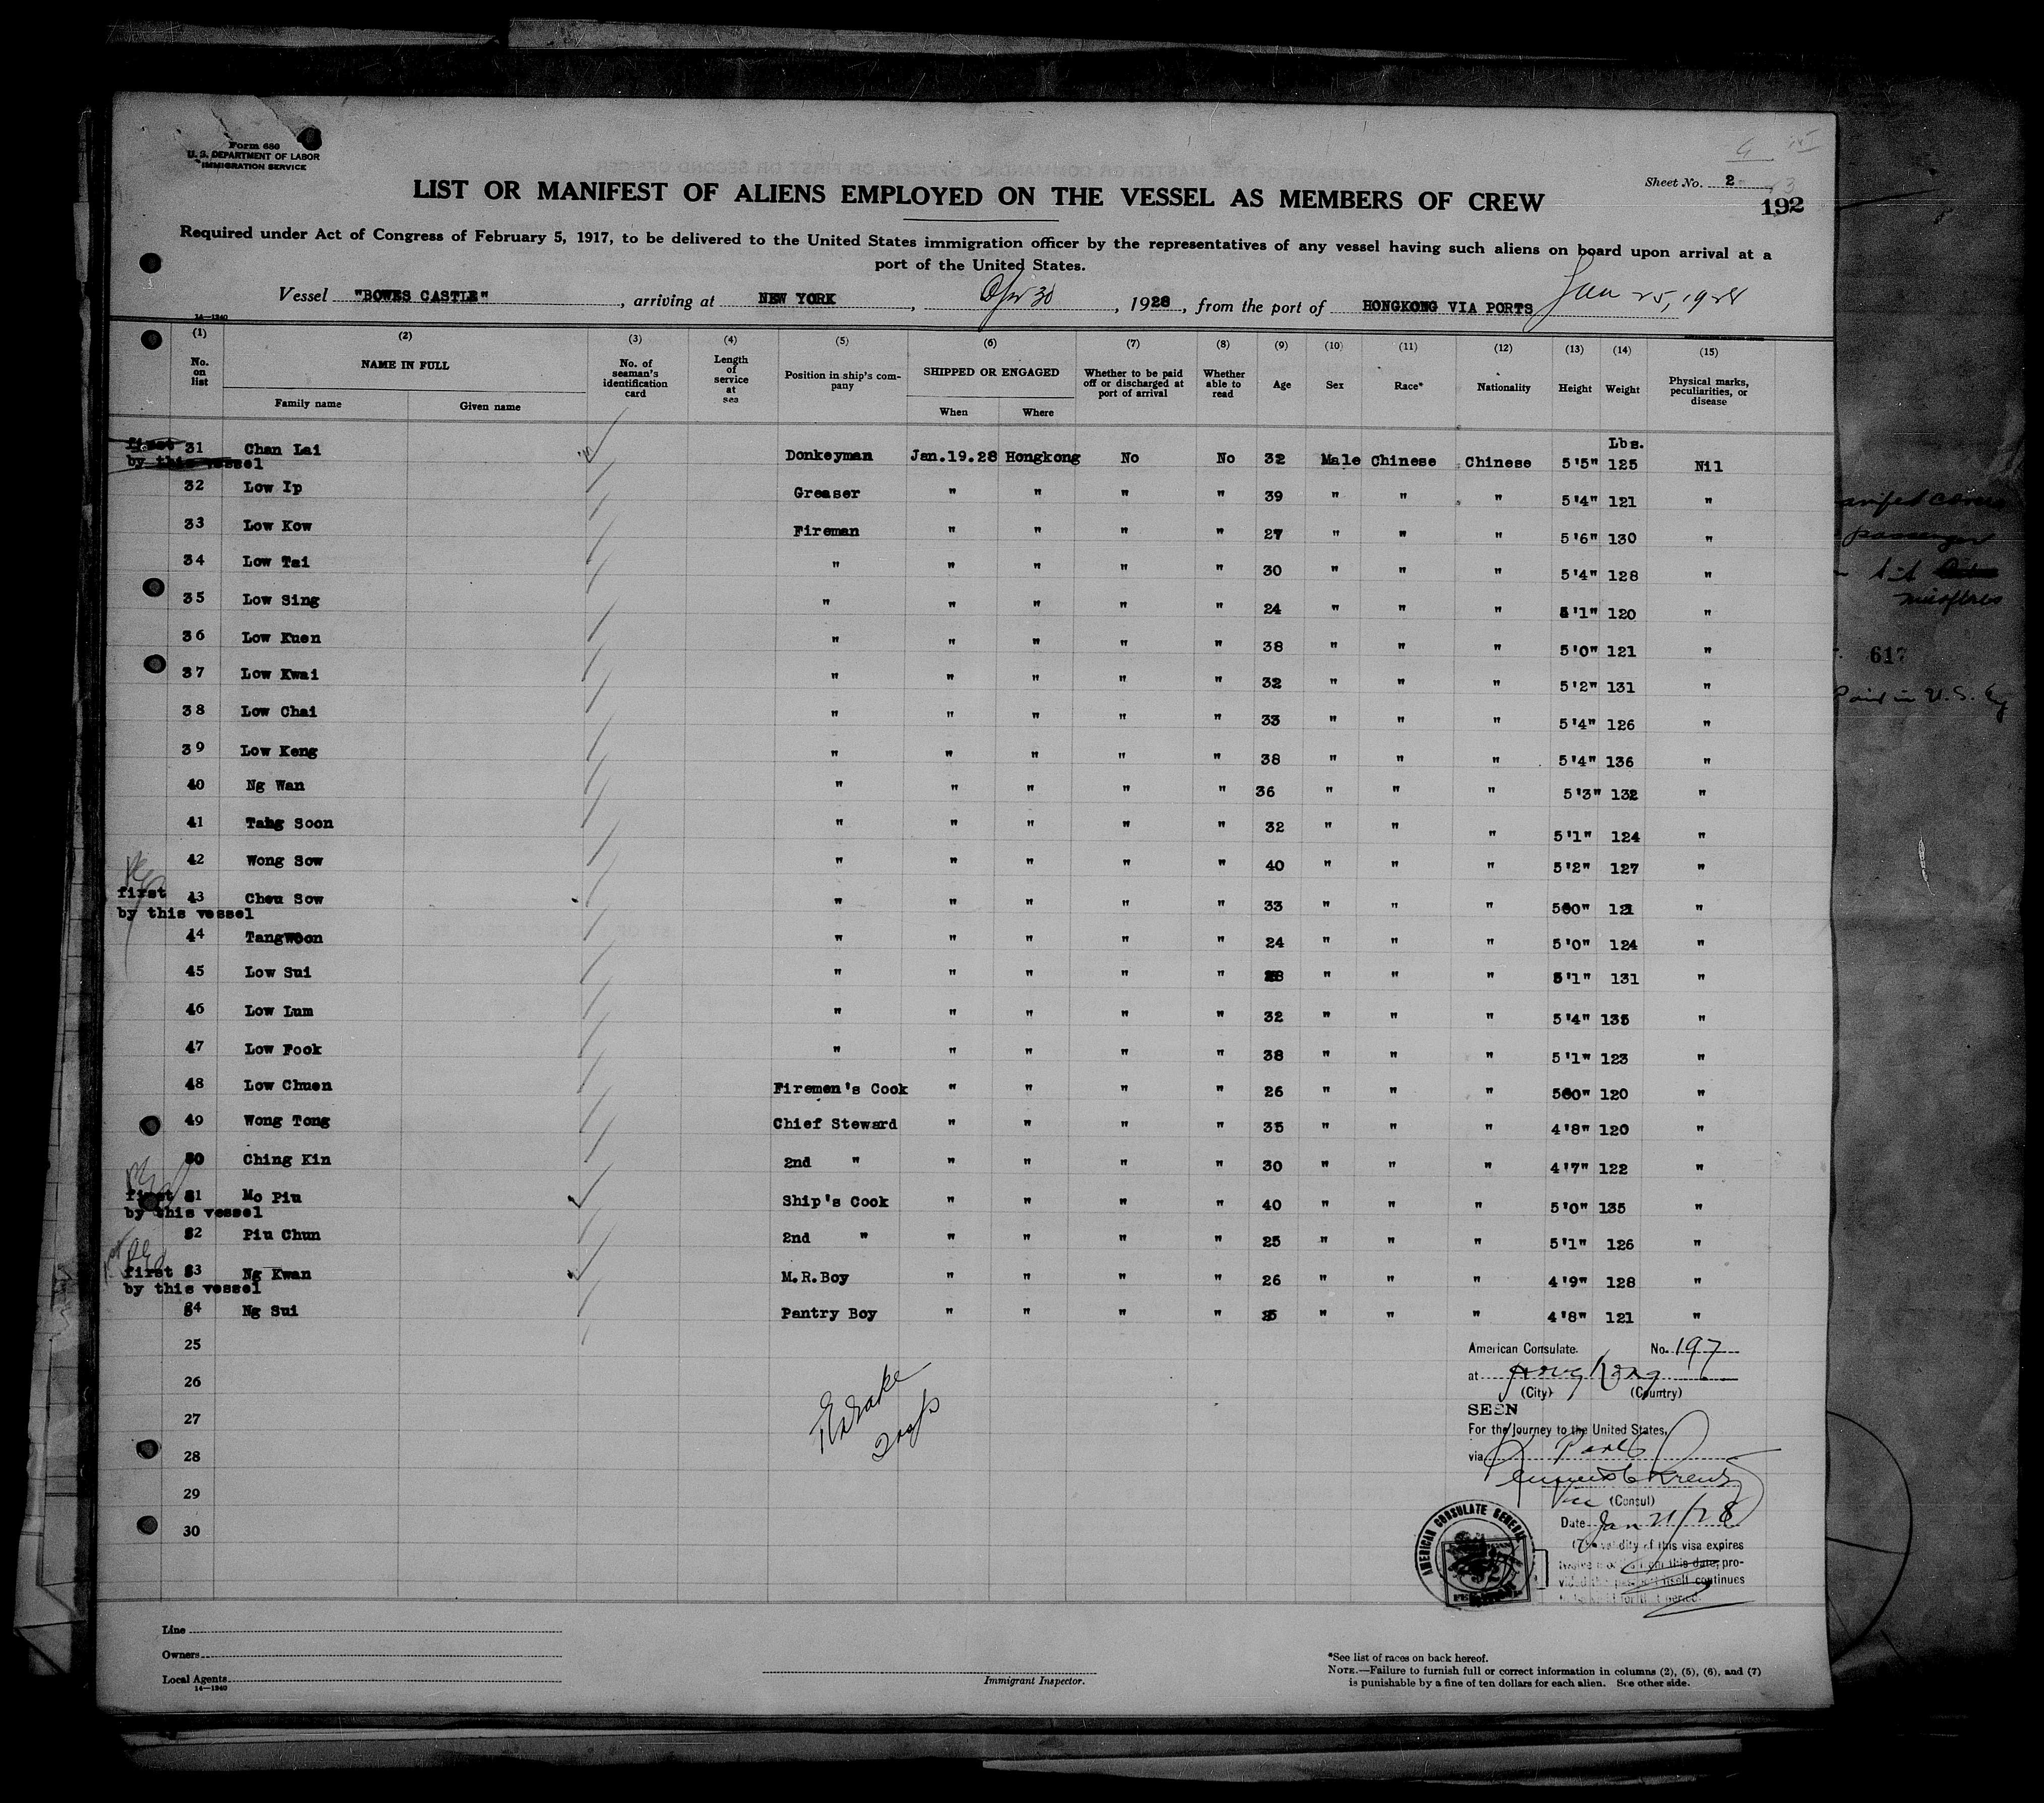 Form 680
U. S. DEPARTMENT OF LABOR
IMMIGRATION SERVICE
Sheet No. 2
192
LIST OR MANIFEST OF ALIENS EMPLOYED ON THE VESSEL AS MEMBERS OF CREW
Required under Act of Congress of February 5, 1917, to be delivered to the United States immigration officer by the representatives of any vessel having such aliens on board upon arrival at a
port of the United States.
Vessel "BOWES CASTLE", arriving at NEW YORK, Apr 30, 1928, from the port of HONGKONG VIA PORTS Jan 25, 1928
14—1240
(1) (2) (3) (4) (5) (6) (7) (8) (9) (10) (11) (12) (13) (14) (15)
No. on list NAME IN FULL No. of seaman's identification card Length of service at sea Position in ship's company SHIPPED OR ENGAGED Whether to be paid off or discharged at port of arrival Whether able to read Age Sex Race* Nationality Height Weight Physical marks, peculiarities, or disease
Family name Given name When Where
Lbs.
first 31 Chan Lai Donkeyman Jan.19.28 Hongkong No No 32 Male Chinese Chinese 5'5" 125 Nil
by this vessel
32 Low Ip Greaser " " " " 39 " " " 5'4" 121 "
33 Low Kow Fireman " " " " 27 " " " 5'6" 130 "
34 Low Tai " " " " " 30 " " " 5'4" 128 "
35 Low Sing " " " " " 24 " " " 5'1" 120 "
36 Low Kuen " " " " " 38 " " " 5'0" 121 "
37 Low Kwai " " " " " 32 " " " 5'2" 131 "
38 Low Chai " " " " " 33 " " " 5'4" 126 "
39 Low Keng " " " " " 38 " " " 5'4" 136 "
40 Ng Wan " " " " " 36 " " " 5'3" 132 "
41 Tang Soon " " " " " 32 " " " 5'1" 124 "
42 Wong Sow " " " " " 40 " " " 5'2" 127 "
first 43 Cheu Sow " " " " " 33 " " " 5'0" 121 "
by this vessel
44 Tang Woon " " " " " 24 " " " 5'0" 124 "
45 Low Sui " " " " " " " " 5'1" 131 "
46 Low Lum " " " " " 32 " " " 5'4" 135 "
47 Low Fook " " " " " 38 " " " 5'1" 123 "
48 Low Chuen Firemen's Cook " " " " 26 " " " 5'0" 120 "
49 Wong Tong Chief Steward " " " " 35 " " " 4'8" 120 "
50 Ching Kin 2nd " " " " " 30 " " " 4'7" 122 "
first 51 Mo Piu Ship's Cook " " " " 40 " " " 5'0" 135 "
by this vessel
52 Piu Chun 2nd " " " " " 25 " " " 5'1" 126 "
first 53 Ng Kwan M.R.Boy " " " " 26 " " " 4'9" 128 "
by this vessel
54 Ng Sui Pantry Boy " " " " " " " 4'8" 121 "
25
26
27
28
29
30
American Consulate. No. 197
at Hong Kong
(City) (Country)
SEEN
For the journey to the United States,
via Ports
Vice (Consul)
Date Jan 21/28
The validity of this visa expires
twelve months from this date, pro-
vided the passport itself continues
AMERICAN CONSULATE GENERAL
Line
Owners
Local Agents
14—1240
Immigrant Inspector.
*See list of races on back hereof.
NOTE.—Failure to furnish full or correct information in columns (2), (5), (6), and (7)
is punishable by a fine of ten dollars for each alien. See other side.
passenger
617
Paid in U. S. Cy